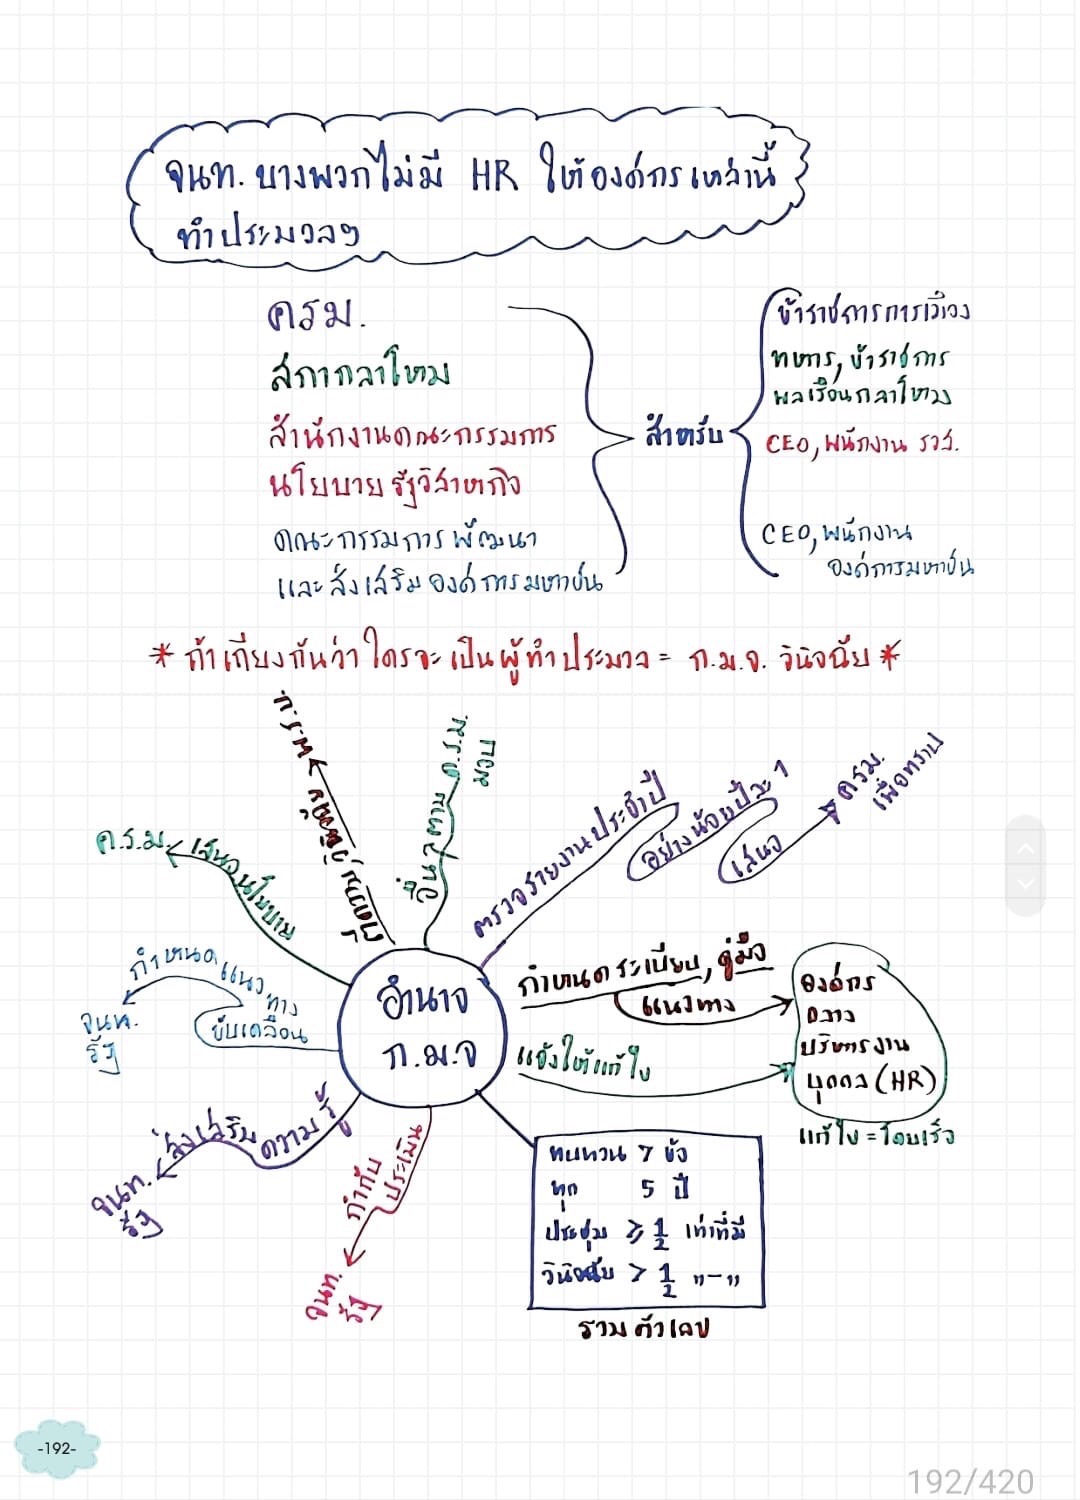 จนท. บางพวกไม่มี HR ให้องค์กรเหล่านี้
ทำประมวลฯ
ครม.
สภากลาโหม
สำนักงานคณะกรรมการ
นโยบายรัฐวิสาหกิจ
คณะกรรมการพัฒนา
และส่งเสริมองค์การมหาชน
สำหรับ
ข้าราชการการเมือง
ทหาร, ข้าราชการ
พลเรือนกลาโหม
CEO, พนักงาน รวส.
CEO, พนักงาน
องค์การมหาชน
* ถ้าเถียงกันว่าใครจะเป็นผู้ทำประมวล = ก.ม.จ. วินิจฉัย *
อำนาจ
ก.ม.จ
ค.ร.ม.
เสนอนโยบาย
อื่นๆ ตาม ค.ร.ม.
มอบ
ตรวจรายงานประจำปี
อย่างน้อยปีละ 1
เสนอ
ครม.
เพื่อทราบ
กำหนดแนวทาง
ขับเคลื่อน
จนท.
รัฐ
กำหนดระเบียบ, คู่มือ
แนวทาง
แจ้งให้แก้ไข
องค์กร
กลาง
บริหารงาน
บุคคล (HR)
แก้ไข = โดยเร็ว
ส่งเสริมความรู้
จนท.
รัฐ
กำกับ
ประเมิน
จนท.
รัฐ
ทบทวน 7 ข้อ
ทุก 5 ปี
ประชุม ≥ 1/2 เท่าที่มี
วินิจฉัย > 1/2 "-"
รวมตัวเลข
-192-
192/420